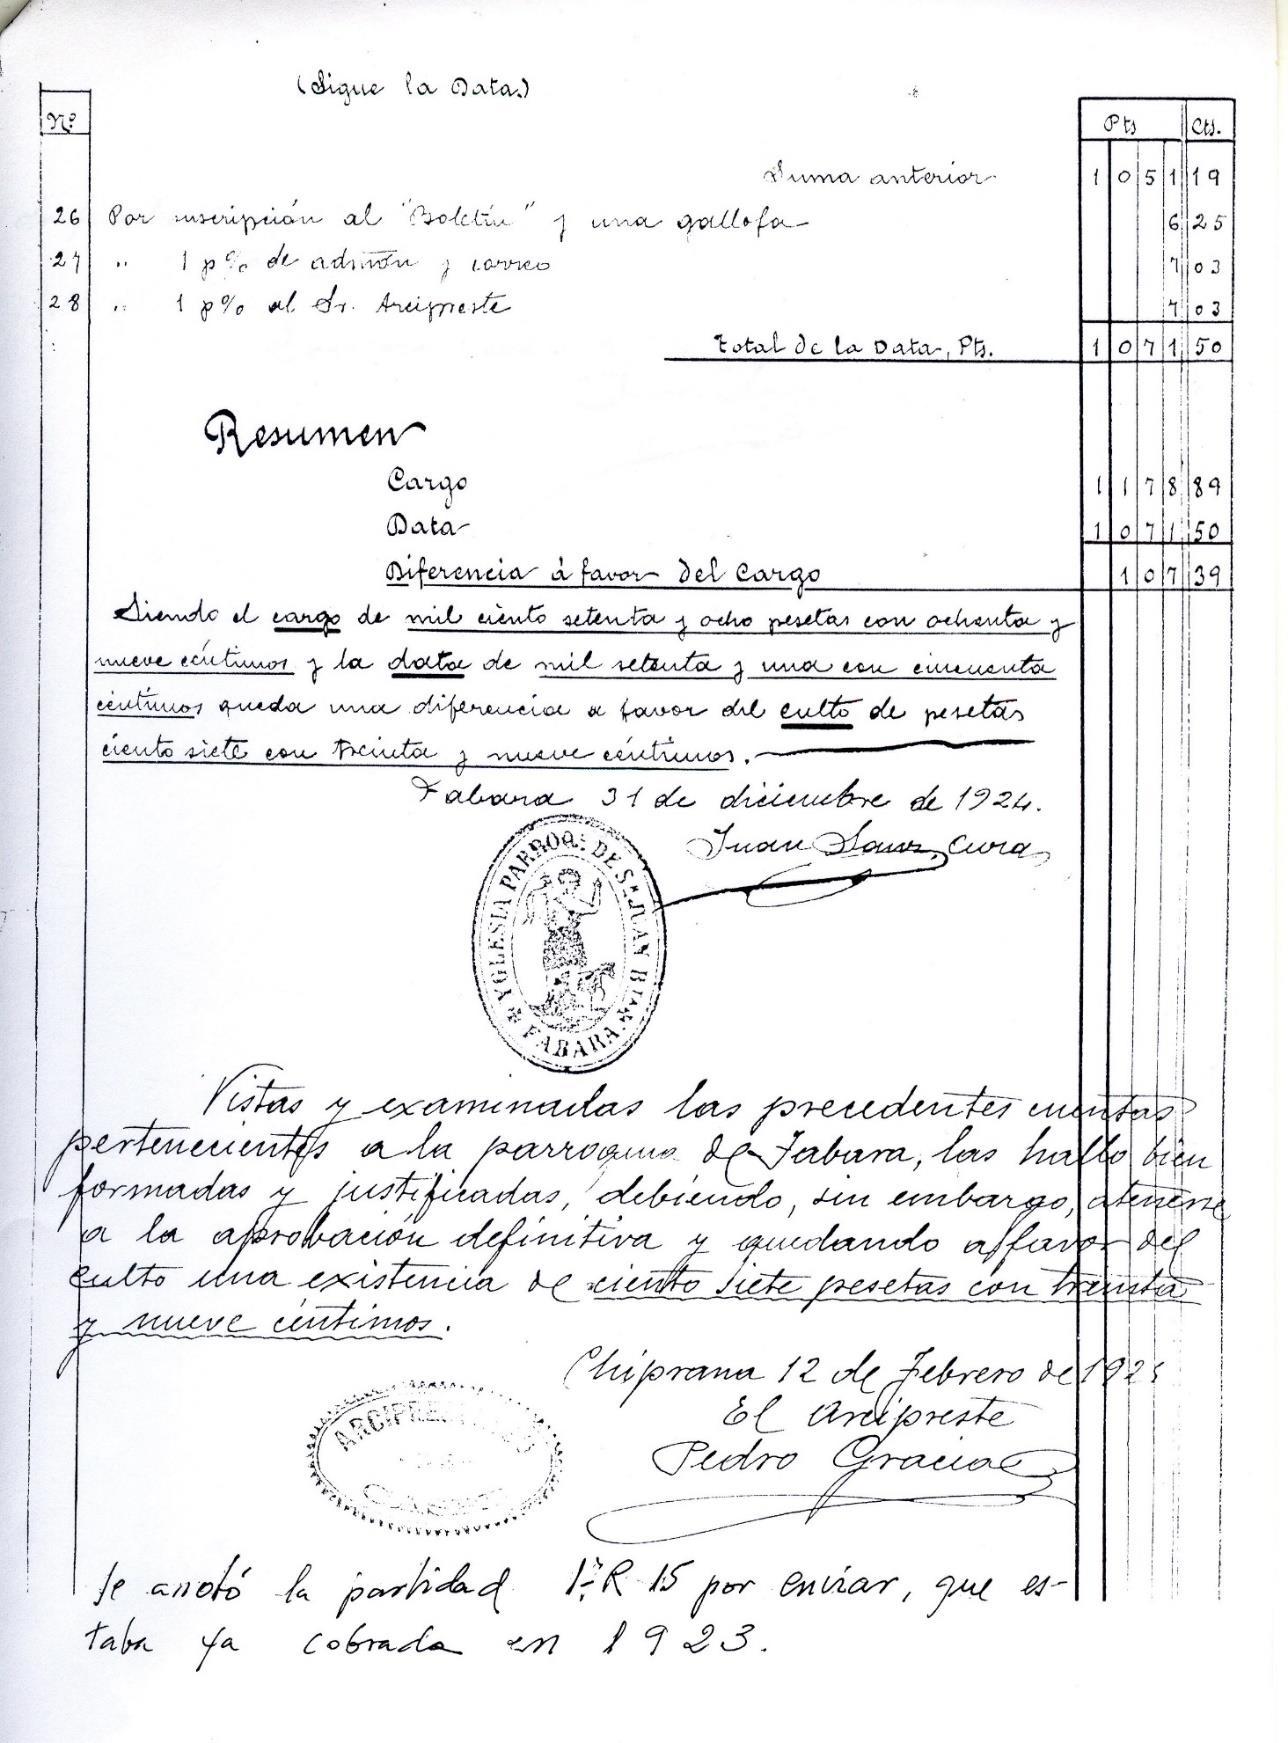 (Sigue la Data)
Nº
Pts Cts.
Suma anterior 1051 19
26 Por suscripción al "Boletín" y una gallofa 6 25
27 " 1 p% de admón y correo 7 03
28 " 1 p% al Sr. Arcipreste 7 03
Total de la Data, Pts. 1071 50
Resumen
Cargo 1178 89
Data 1071 50
Diferencia á favor del Cargo 107 39
Siendo el cargo de mil ciento setenta y ocho pesetas con ochenta y
nueve céntimos y la data de mil setenta y una con cincuenta
céntimos queda una diferencia a favor del culto de pesetas
ciento siete con treinta y nueve céntimos.
Fabara 31 de diciembre de 1924.
Juan Sanz, Cura
YGLESIA PARROQ. DE Sn JUAN Bta
FABARA
Vistas y examinadas las precedentes cuentas
pertenecientes a la parroquia de Fabara, las hallo bien
formadas y justificadas, debiendo, sin embargo, atenerse
a la aprobación definitiva y quedando a favor del
culto una existencia de ciento siete pesetas con treinta
y nueve céntimos.
Chiprana 12 de Febrero de 1925
El Arcipreste
Pedro Gracia
ARCIPRESTAZGO
Se anotó la partidad 1ª R 15 por enviar, que es-
taba ya cobrada en 1923.